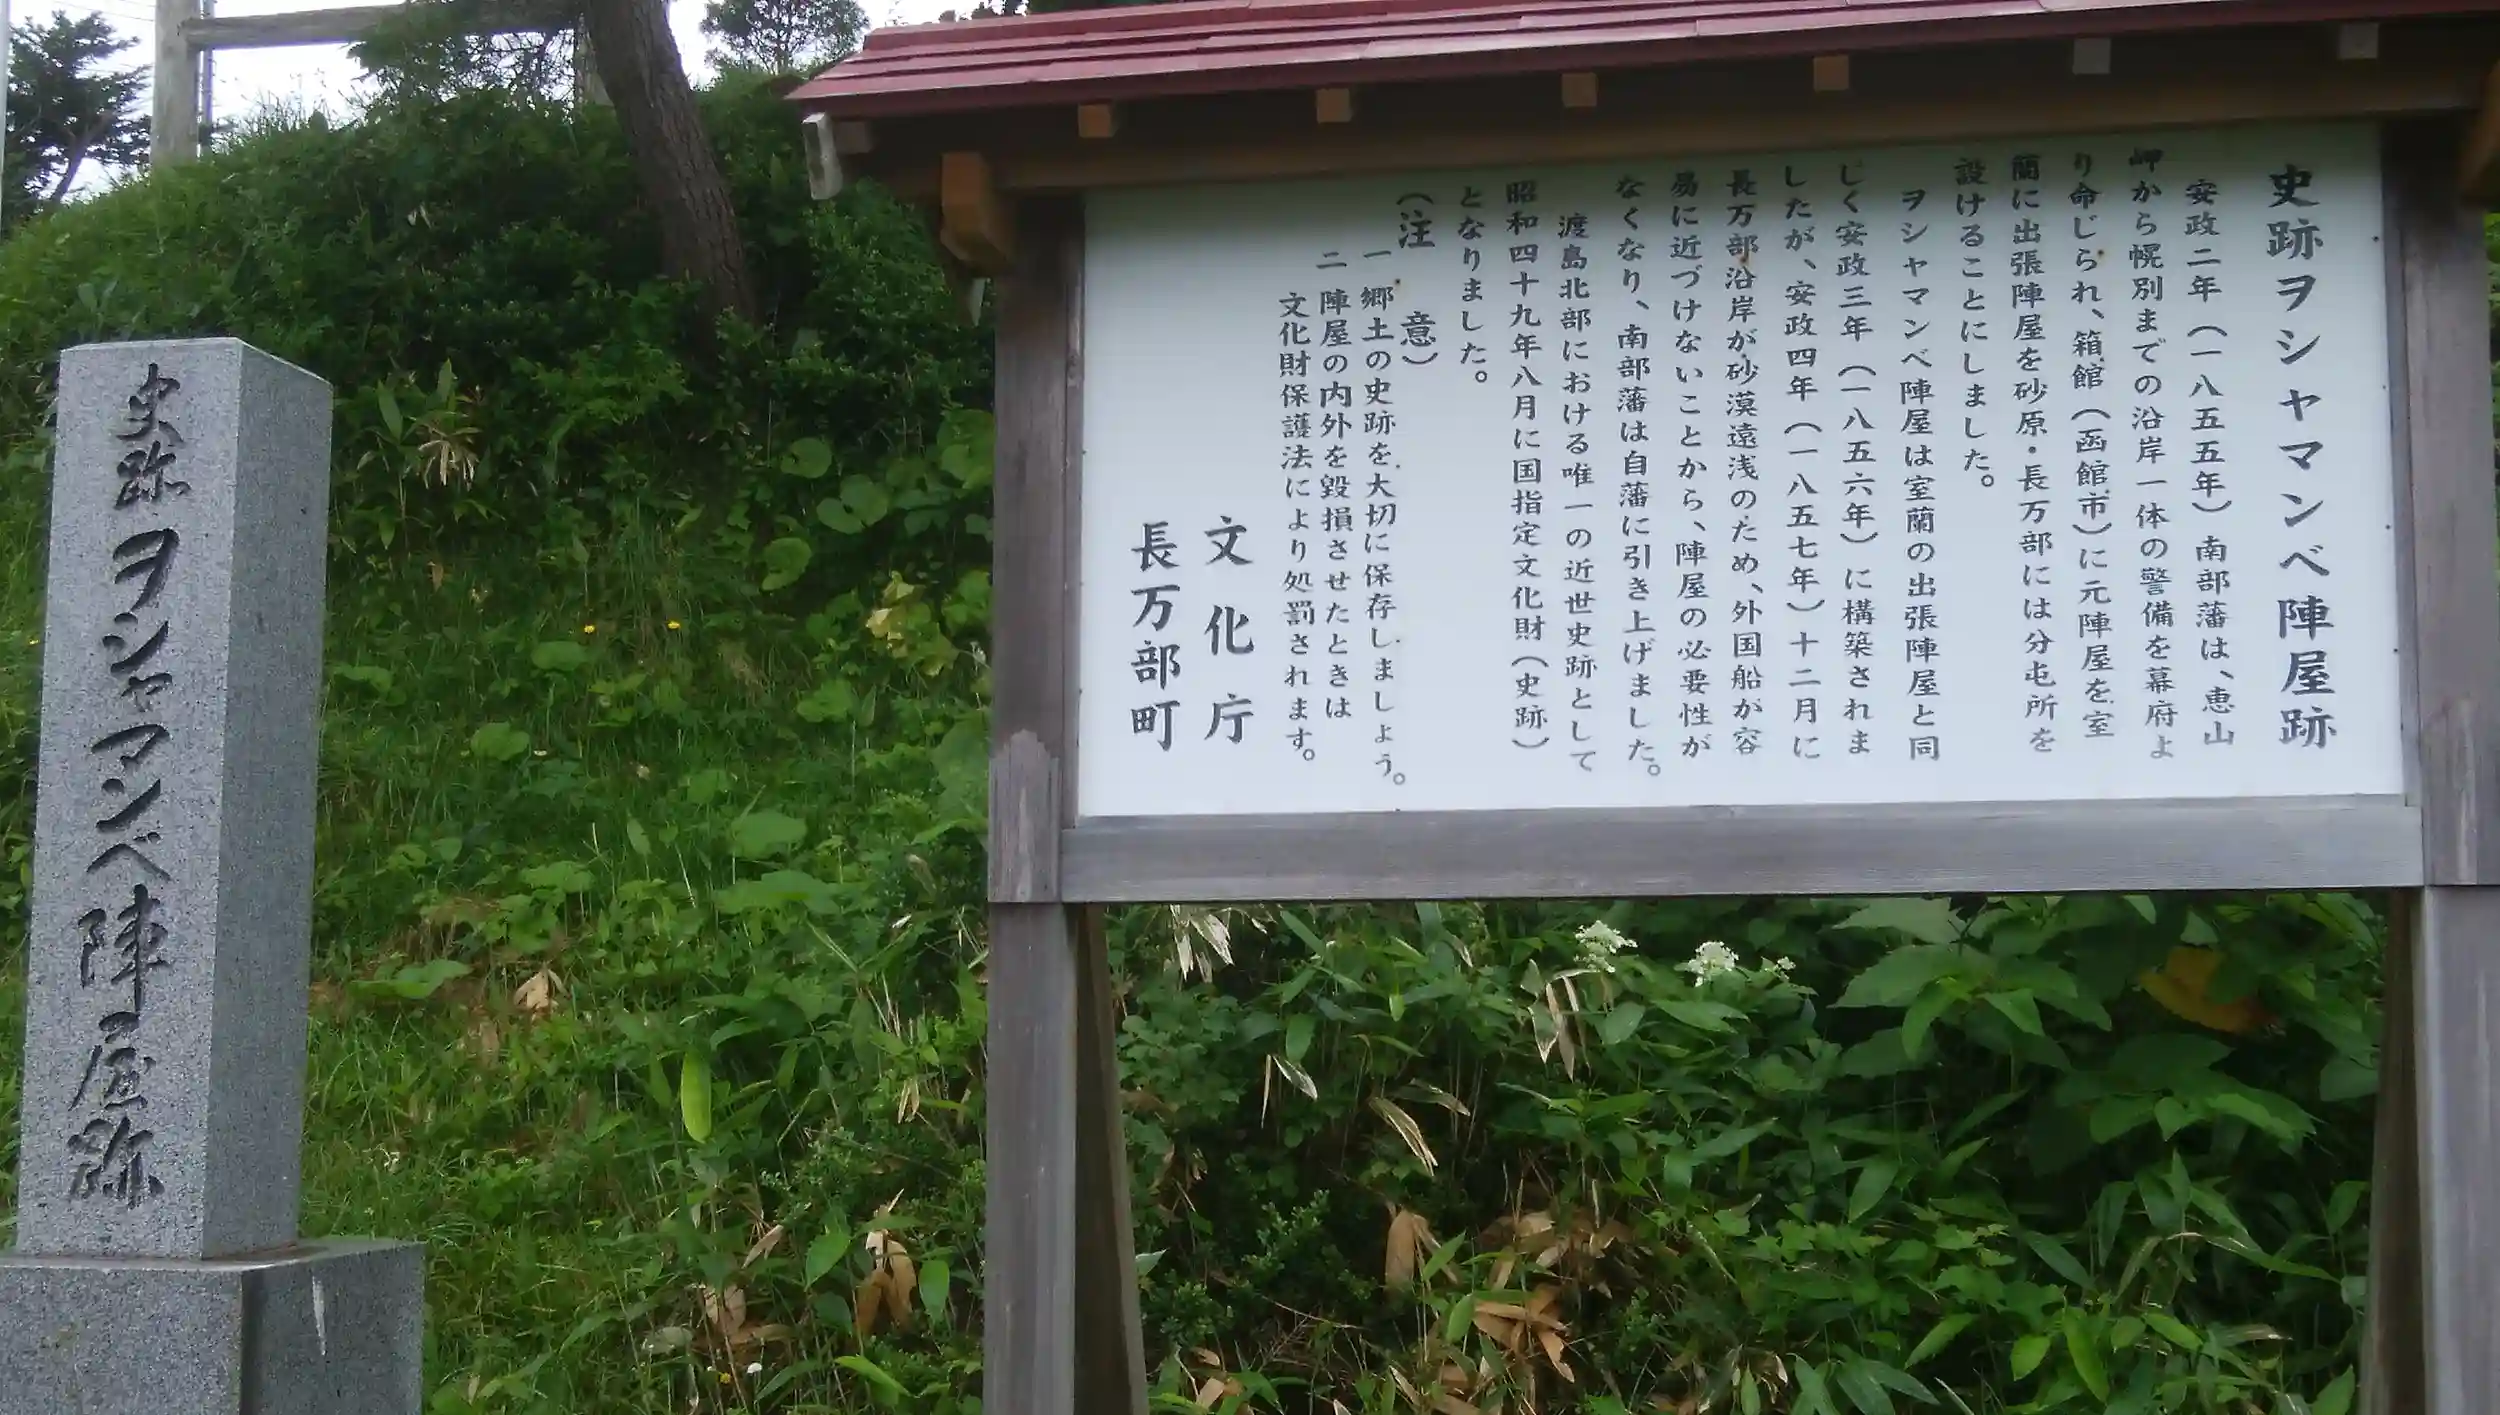 史跡ヲシャマンベ陣屋跡
安政二年(一八五五年)南部藩は、恵山
岬から幌別までの沿岸一体の警備を幕府よ
り命じられ、箱館(函館市)に元陣屋を、室
蘭に出張陣屋を砂原・長万部には分屯所を
設けることにしました。
ヲシャマンベ陣屋は室蘭の出張陣屋と同
じく安政三年(一八五六年)に構築されま
したが、安政四年(一八五七年)十二月に
長万部沿岸が砂漠遠浅のため、外国船が容
易に近づけないことから、陣屋の必要性が
なくなり、南部藩は自藩に引き上げました。
渡島北部における唯一の近世史跡として
昭和四十九年八月に国指定文化財(史跡)
となりました。
(注 意)
一 郷土の史跡を大切に保存しましょう。
二 陣屋の内外を毀損させたときは
文化財保護法により処罰されます。
文化庁
長万部町
史跡 ヲシャマンベ陣屋跡